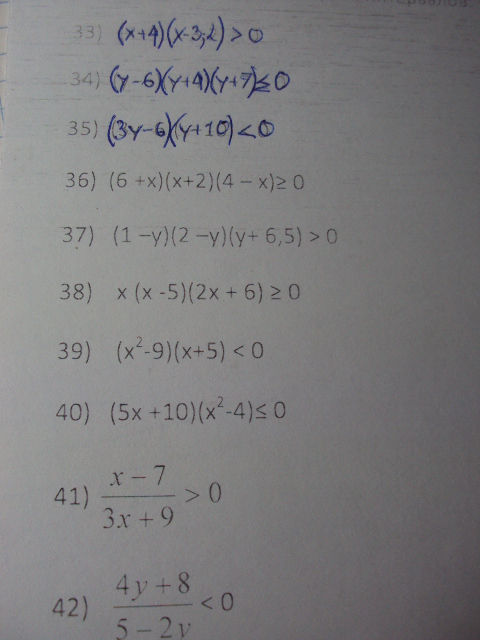 33) (x+4)(x-3,2)>0
34) (y-6)(y+4)(y+7)≤0
35) (3y-6)(y+10)<0
36) (6 +x)(x+2)(4 – x)≥ 0
37) (1 –y)(2 –y)(y+ 6,5) > 0
38) x (x -5)(2x + 6) ≥ 0
39) (x²-9)(x+5) < 0
40) (5x +10)(x²-4)≤ 0
41) x – 7
3x + 9 > 0
42) 4y + 8
5 – 2y < 0